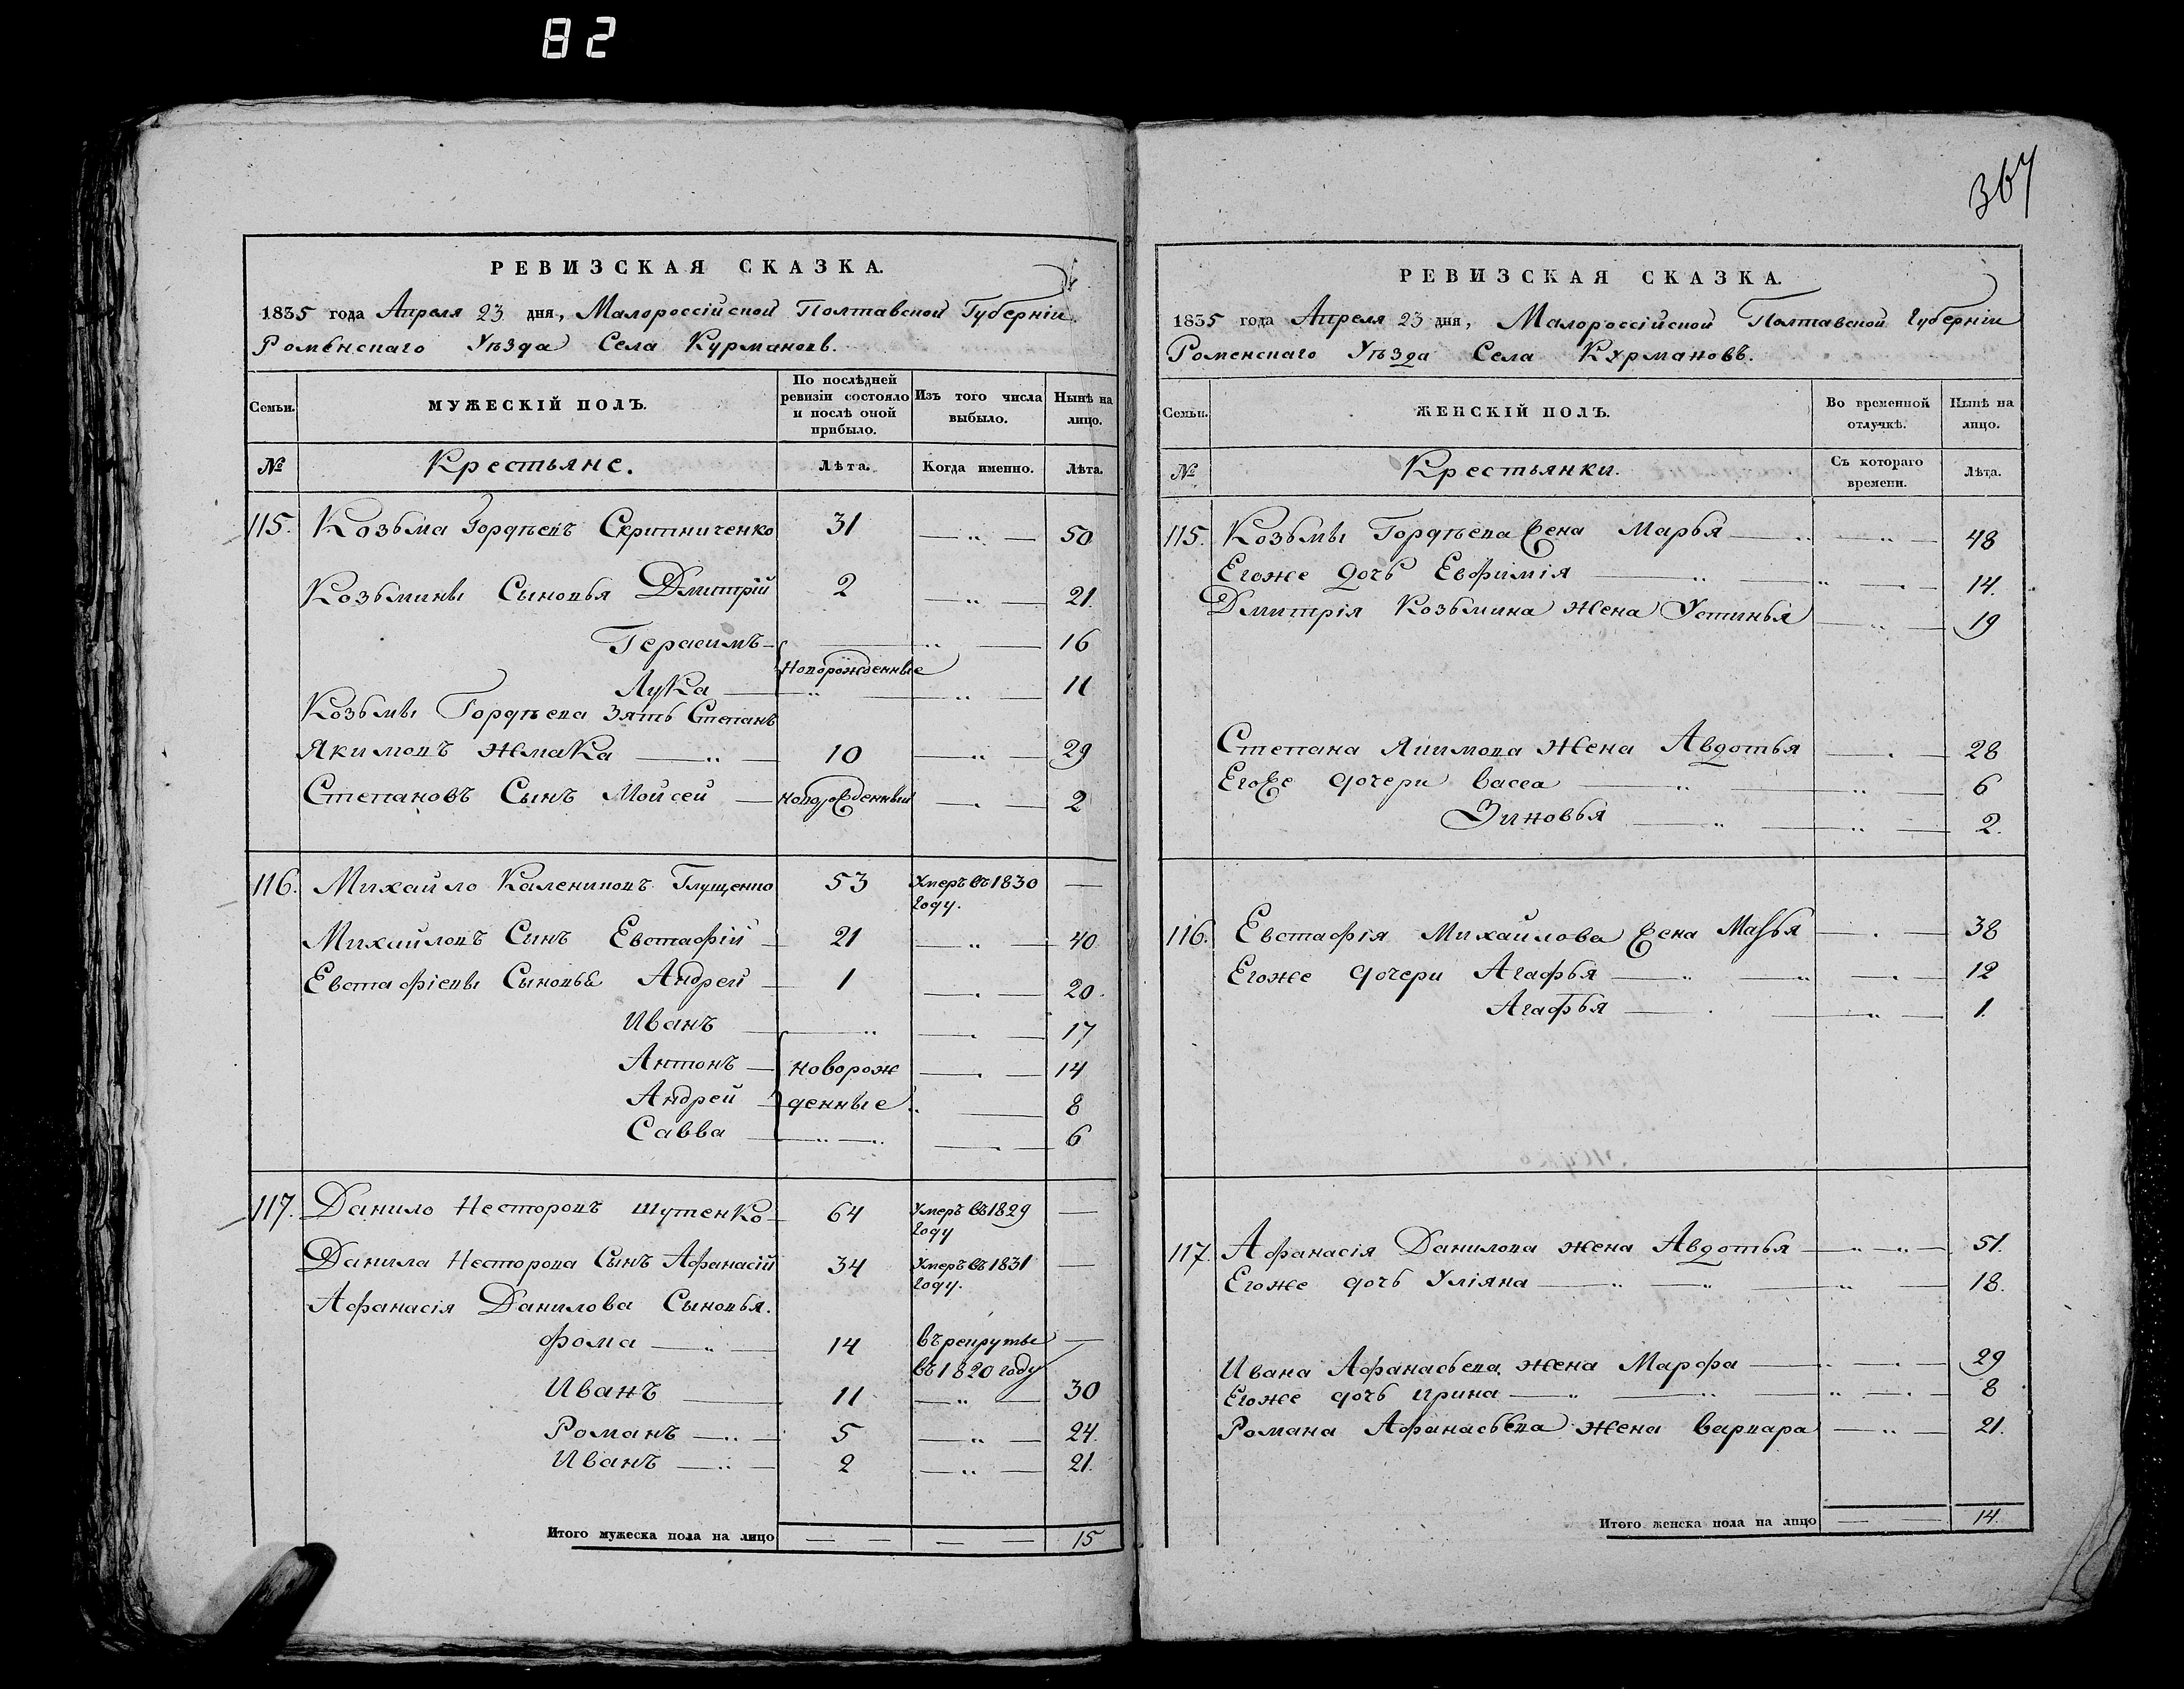 82
367
РЕВИЗСКАЯ СКАЗКА.
1835 года Апреля 23 дня, Малороссійской Полтавской Губерніи
Роменскаго Уѣзда Села Курмановъ.
Семьи. МУЖЕСКІЙ ПОЛЪ. По послѣдней ревизіи состояло и послѣ оной прибыло. Изъ того числа выбыло. Нынѣ на лицо.
№ Крестьяне. Лѣта. Когда именно. Лѣта.
115. Козьма Гордѣевъ Скрипниченко 31 — „ — 50
Козьмины Сыновья Дмитрій 2 — „ — 21.
Герасимъ — „ — 16
Новорожденные
Лука — „ — „ — 11
Козьмы Гордѣева Зять Степанъ
Якимовъ Жмака — „ — 10 — „ — 29
Степановъ Сынъ Мойсей — новорожденный — „ — 2
116. Михайло Калениковъ Глущенко 53 Умеръ въ 1830 году. —
Михайловъ Сынъ Евстафій 21 — „ — 40
Евстафіевы Сыновья Андрей 1 — „ — 20.
Иванъ — „ — 17
Антонъ — новорож — „ — 14
Андрей — денные „ — 8
Савва — „ — „ — 6
117. Данило Несторовъ Шутенко 64 Умеръ въ 1829 году —
Данила Несторова Сынъ Афанасій 34 Умеръ въ 1831 году. —
Афанасія Данилова Сыновья.
Фома — „ — 14 въ рекруты —
въ 1820 году
Иванъ — 11 — „ — 30
Романъ — „ — 5 — „ — 24.
Иванъ — „ — 2 — „ — 21.
Итого мужеска пола на лицо — — — — 15
РЕВИЗСКАЯ СКАЗКА.
1835 года Апреля 23 дня, Малороссійской Полтавской Губерніи
Роменскаго Уѣзда Села Курмановъ.
Семьи. ЖЕНСКІЙ ПОЛЪ. Во временной отлучкѣ. Нынѣ на лицо.
№ Крестьянки. Съ котораго времени. Лѣта.
115. Козьмы Гордѣева Жена Марья — „ — „ — 48
Егоже дочь Евфимія — „ — „ — 14.
Дмитрія Козьмина жена Устинья — „ — 19
Степана Якимова Жена Авдотья — „ — 28
Егоже дочери Васса — „ — „ — 6
Зиновья — „ — „ — 2.
116. Евстафія Михайлова Жена Марья — „ — 38
Егоже дочери Агафья — „ — „ — 12
Агафья — „ — „ — 1.
117. Афанасія Данилова жена Авдотья — „ — „ — 51.
Егоже дочь Уліяна — „ — „ — „ — 18.
Ивана Афанасьева жена Марфа — „ — „ — 29
Егоже дочь Ирина — „ — „ — „ — 8
Романа Афанасьева жена Варвара — „ — 21.
Итого женска пола на лицо — — 14.